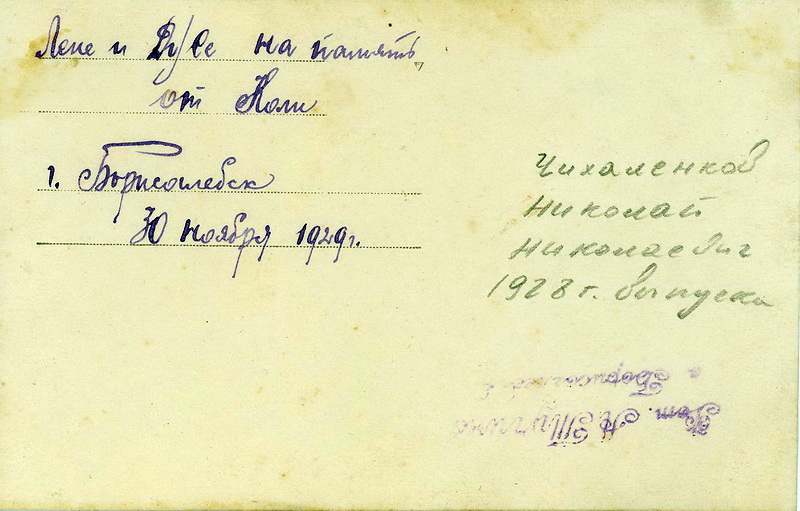 Лене и Дусе на память
от Коли
г. Борисоглебск
30 ноября 1929г.
Чихаленков
Николай
Николаевич
1928 г. выпуска
Фот.
г. Борисоглебск